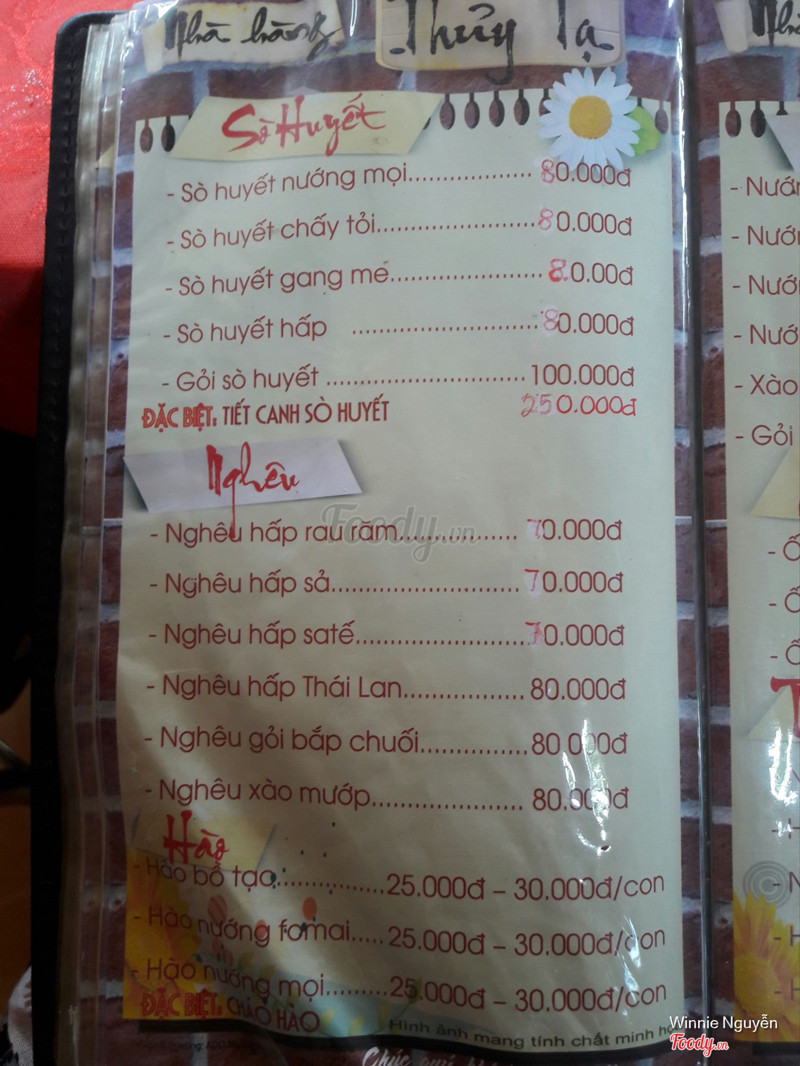 Nhà hàng Thủy Tạ
Sò Huyết
- Sò huyết nướng mọi.................. 80.000đ
- Sò huyết chấy tỏi........................80.000đ
- Sò huyết gang me.......................80.00đ
- Sò huyết hấp ............................80.000đ
- Gỏi sò huyết .............................100.000đ
ĐẶC BIỆT: TIẾT CANH SÒ HUYẾT 250.000đ
Nghêu
- Nghêu hấp rau răm.................. 70.000đ
- Nghêu hấp sả............................70.000đ
- Nghêu hấp satế.........................70.000đ
- Nghêu hấp Thái Lan................. 80.000đ
- Nghêu gỏi bắp chuối................80.000đ
- Nghêu xào mướp...................... 80.000đ
Hào
- Hào bồ tạo................25.000đ – 30.000đ/con
- Hào nướng fomai.....25.000đ – 30.000đ/con
- Hào nướng mọi.........25.000đ – 30.000đ/con
ĐẶC BIỆT: CHÁO HÀO
Hình ảnh mang tính chất minh
- Nướ
- Nướn
- Nướ
- Nướ
- Xào
- Gỏi
Foody.vn
Winnie Nguyễn
Foody.vn